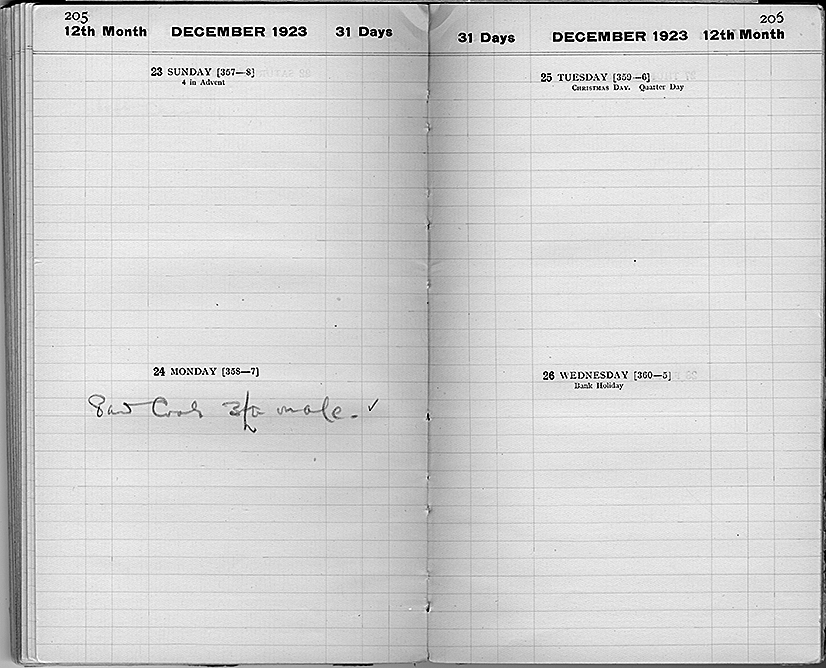 205
12th Month DECEMBER 1923 31 Days
23 SUNDAY [357—8]
4 in Advent
24 MONDAY [358—7]
Saw Cook male. ✓
206
31 Days DECEMBER 1923 12th Month
25 TUESDAY [359—6]
CHRISTMAS DAY. Quarter Day
26 WEDNESDAY [360—5]
Bank Holiday